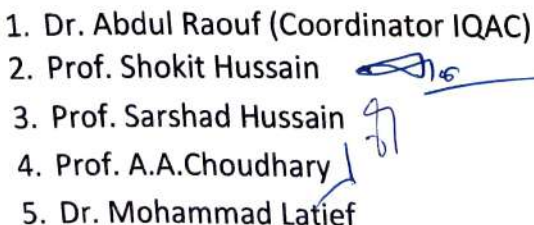 1. Dr. Abdul Raouf (Coordinator IQAC)
2. Prof. Shokit Hussain
3. Prof. Sarshad Hussain
4. Prof. A.A.Choudhary
5. Dr. Mohammad Latief